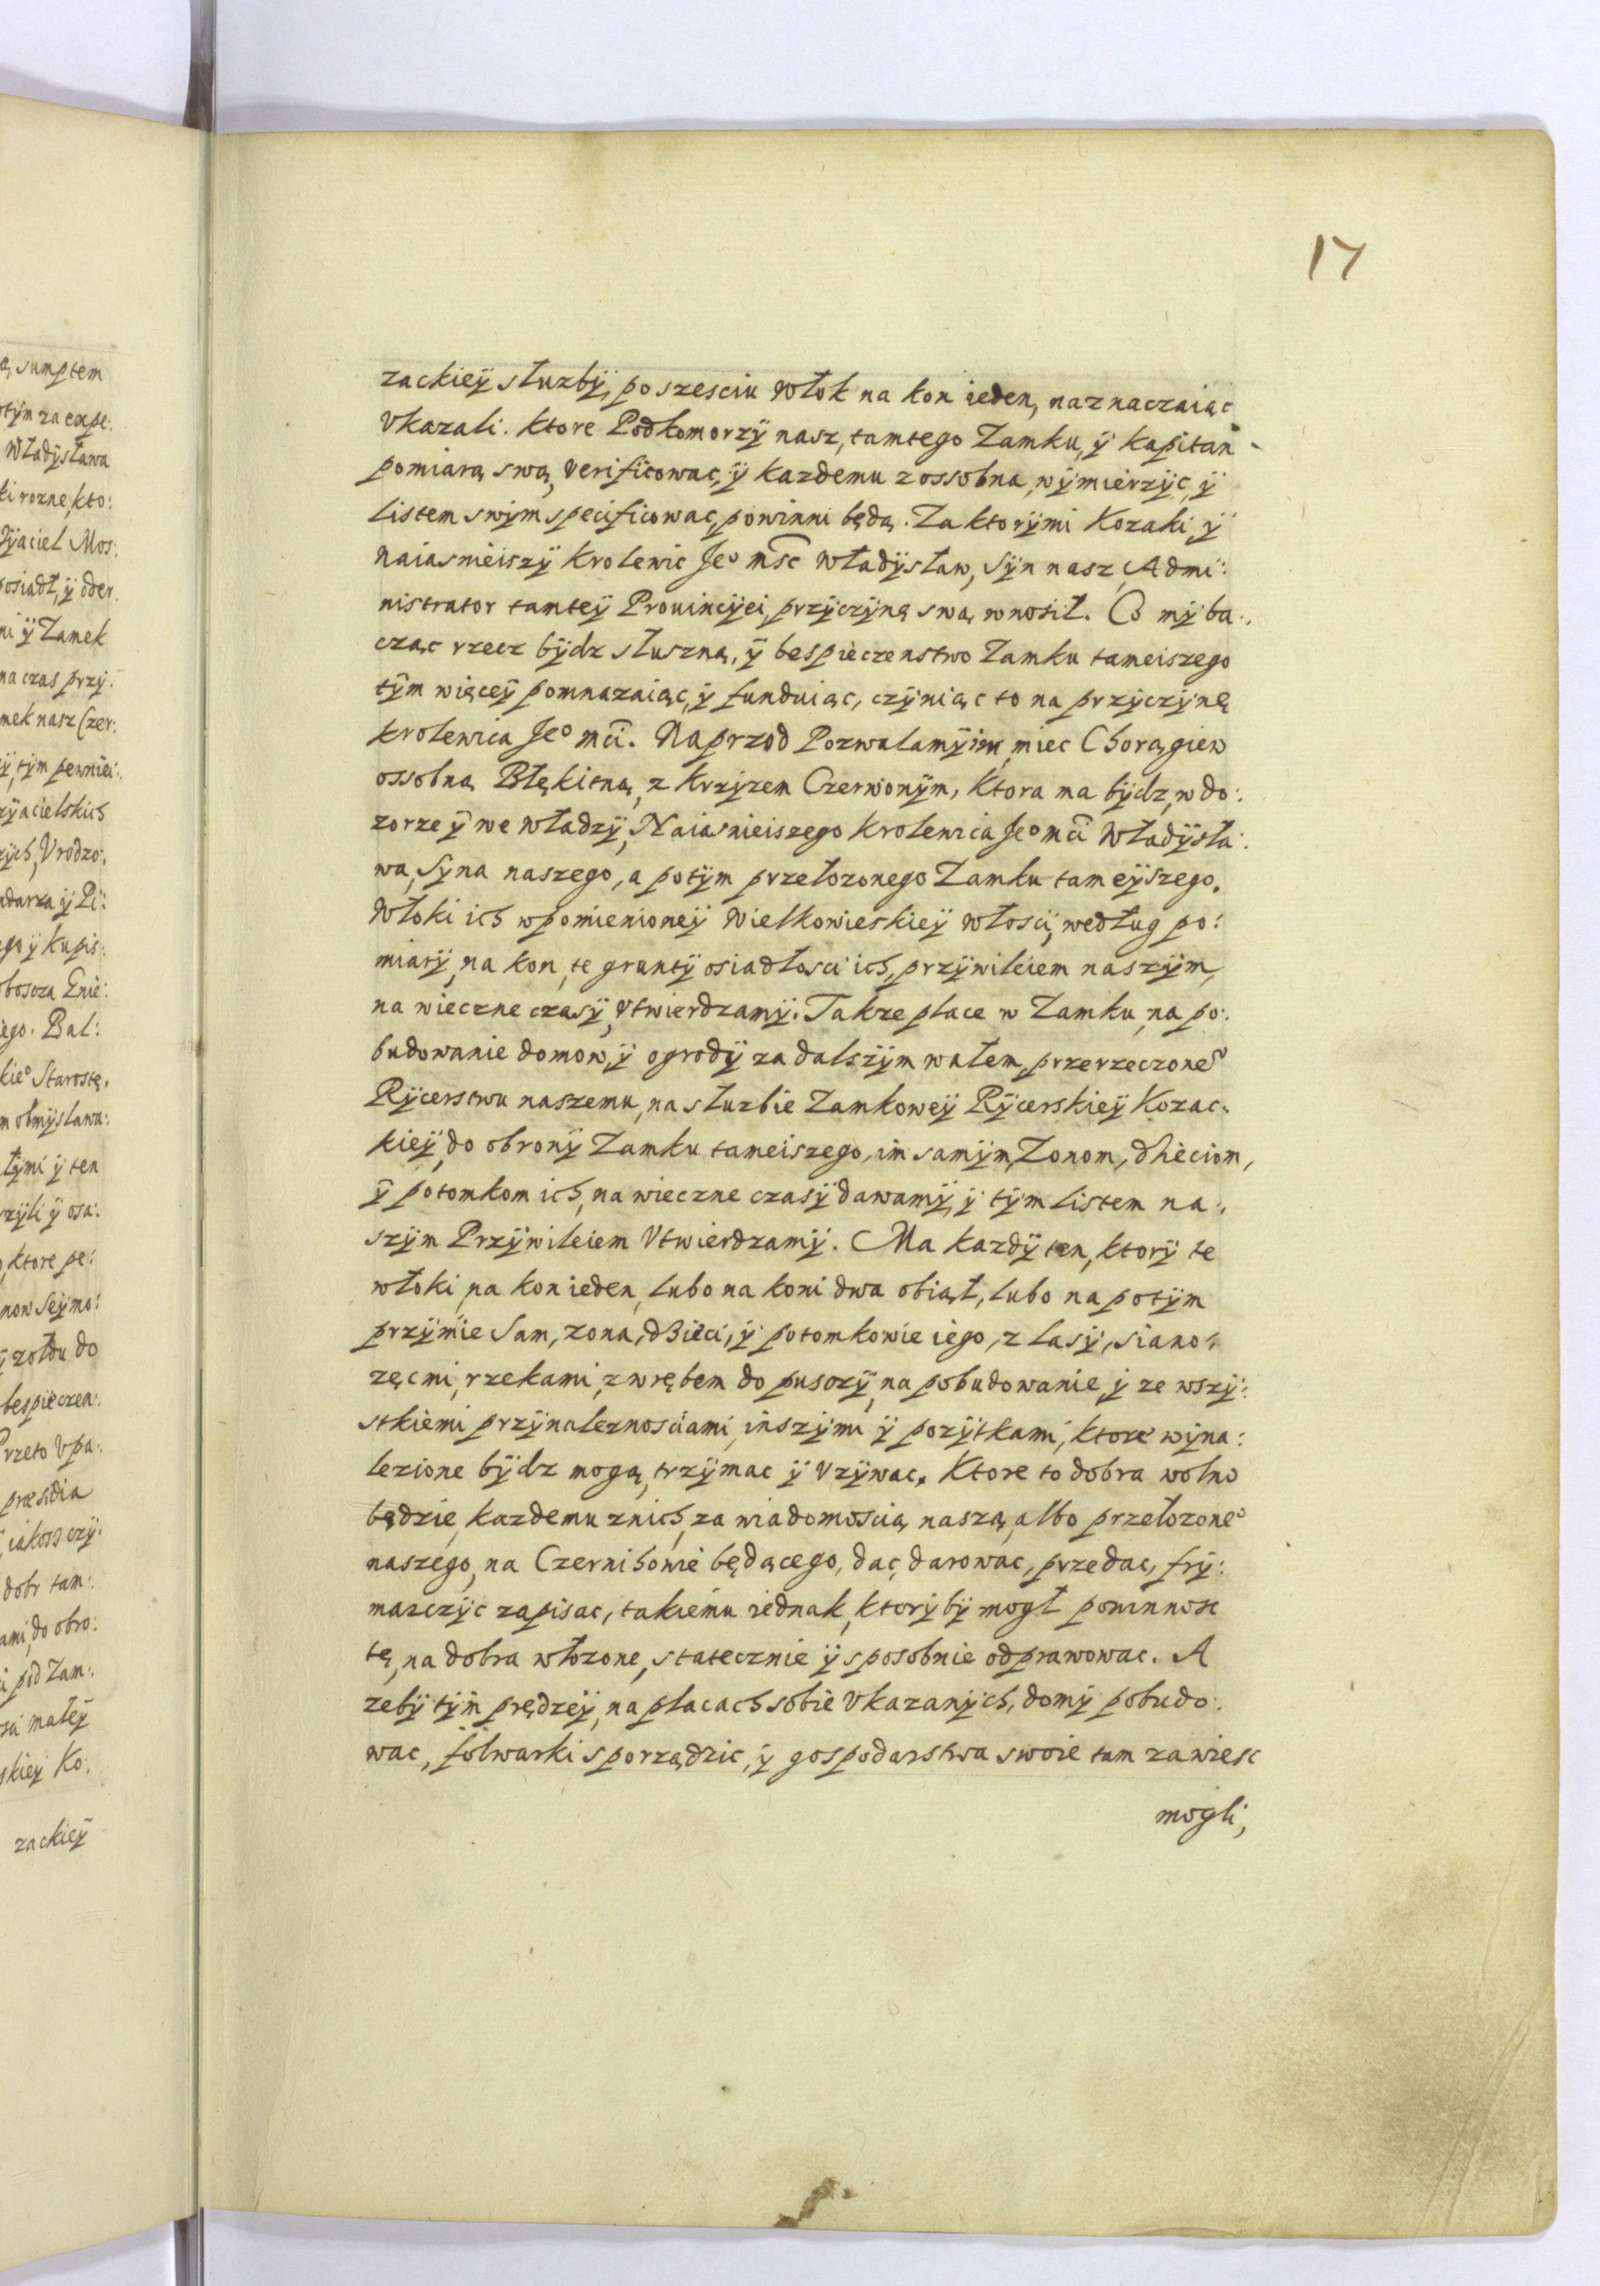 17
ą, sumptem
Władysława
ki rozne, kto:
yiaciel Mos:
ni ÿ Zamek
na czas przÿ:
mek nasz Czer:
ÿ, tÿm pewniei:
zÿacielskich
ego ÿ kupis:
iego. Bal:
kie° Starostę,
łÿmi ÿ ten
rzÿli ÿ osa:
ktore pe:
now Seÿmo:
ÿ zołdu do
bespieczen:
Przeto vpa:
præsidia
dobr tam:
ami, do obro:
i pod Zam:
małeÿ
skieÿ Ko:
zackieÿ
zackieÿ służbÿ, po szesciu Włok na kon ieden, naznaczaiąc
Vkazali. ktore Podkomorzÿ nasz, tamtego Zamku, ÿ kapitan
pomiarą swą, verificowac, ÿ kazdemu z ossobna, wÿmierzÿc, ÿ
listem swÿm specificowac, powinni będą. Za ktorÿmi Kozaki ÿ
naiasnieiszÿ krolewic Je° mśc Władÿsław, Sÿn nasz, Admi:
nistrator tamteÿ Prouincÿei, przÿczÿnę swą wnosił. Co mÿ ba:
cząc rzecz bÿdz słuszną, ÿ bespieczenstwo Zamku tameiszego
tÿm więceÿ pomnazaiąc, ÿ funduiąc, czÿniąc to na przÿczÿnę
krolewica Je° mci. Naprzod Pozwalamÿ im, miec Chorągiew
ossobną Błękitną, z krzÿzem Czerwonÿm, ktora ma bÿdz, w do:
zorze ÿ we władzÿ, Naiasnieiszego krolewica Je° mci Władÿsła:
wa, Sÿna naszego, a potÿm przełozonego Zamku tameÿszego.
Włoki ich wpomienioneÿ Wielkowieskieÿ włosci, według po:
miarÿ, na kon, te gruntÿ osiadłosci ich, przÿwileiem naszÿm,
na wieczne czasÿ, Vtwierdzamÿ. Takze place w Zamku, na po:
budowanie domow, ÿ ogrodÿ za dalszÿm wałem, przerzeczone°
Rÿcerstwu naszemu, na słuzbie Zamkoweÿ Rÿcerskieÿ Kozac:
kieÿ, do obronÿ Zamku tameiszego, im samÿm, Zonom, dzieciom,
ÿ potomkom ich, na wieczne czasÿ dawamÿ, ÿ tÿm listem na:
szÿm Przÿwileiem Vtwierdzamÿ. Ma kazdÿ ten, ktorÿ te
włoki, na kon ieden, lubo na koni dwa obiął, lubo na potÿm
przÿmie Sam, zona, dzieci, ÿ potomkowie iego, z lasÿ, siano:
zęcmi, rzekami, z wrębem do puszczÿ, na pobudowanie, ÿ ze wszÿ:
stkiemi przÿnaleznosciami, inszÿmi ÿ pozÿtkami, ktore wÿna:
lezione bÿdz mogą, trzÿmac ÿ Vzÿwac. Ktore to dobra wolno
będzie, kazdemu z nich, za wiadomoscią naszą, albo przełozone°
naszego, na Czernihowie będącego, dac, darowac, przedac, frÿ:
marczÿc zapisac, takiemu iednak, ktorÿ bÿ mogł powinnosc
tę, na dobra włozone, statecznie ÿ sposobnie odprawowac. A
zebÿ tÿm prędzeÿ, na placach sobie Vkazanÿch, domÿ pobudo:
wac, folwarki sporządzic, ÿ gospodarstwa swoie tam zawiesc
mogli,